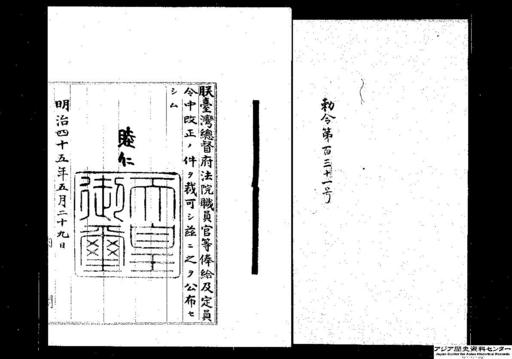 勅令第百三十一号
朕臺灣總督府法院職員官等俸給及定員
令中改正ノ件ヲ裁可シ茲ニ之ヲ公布セ
シム
睦仁
天皇
御璽
明治四十五年五月二十九日
アジア歴史資料センター
Japan Center for Asian Historical Records